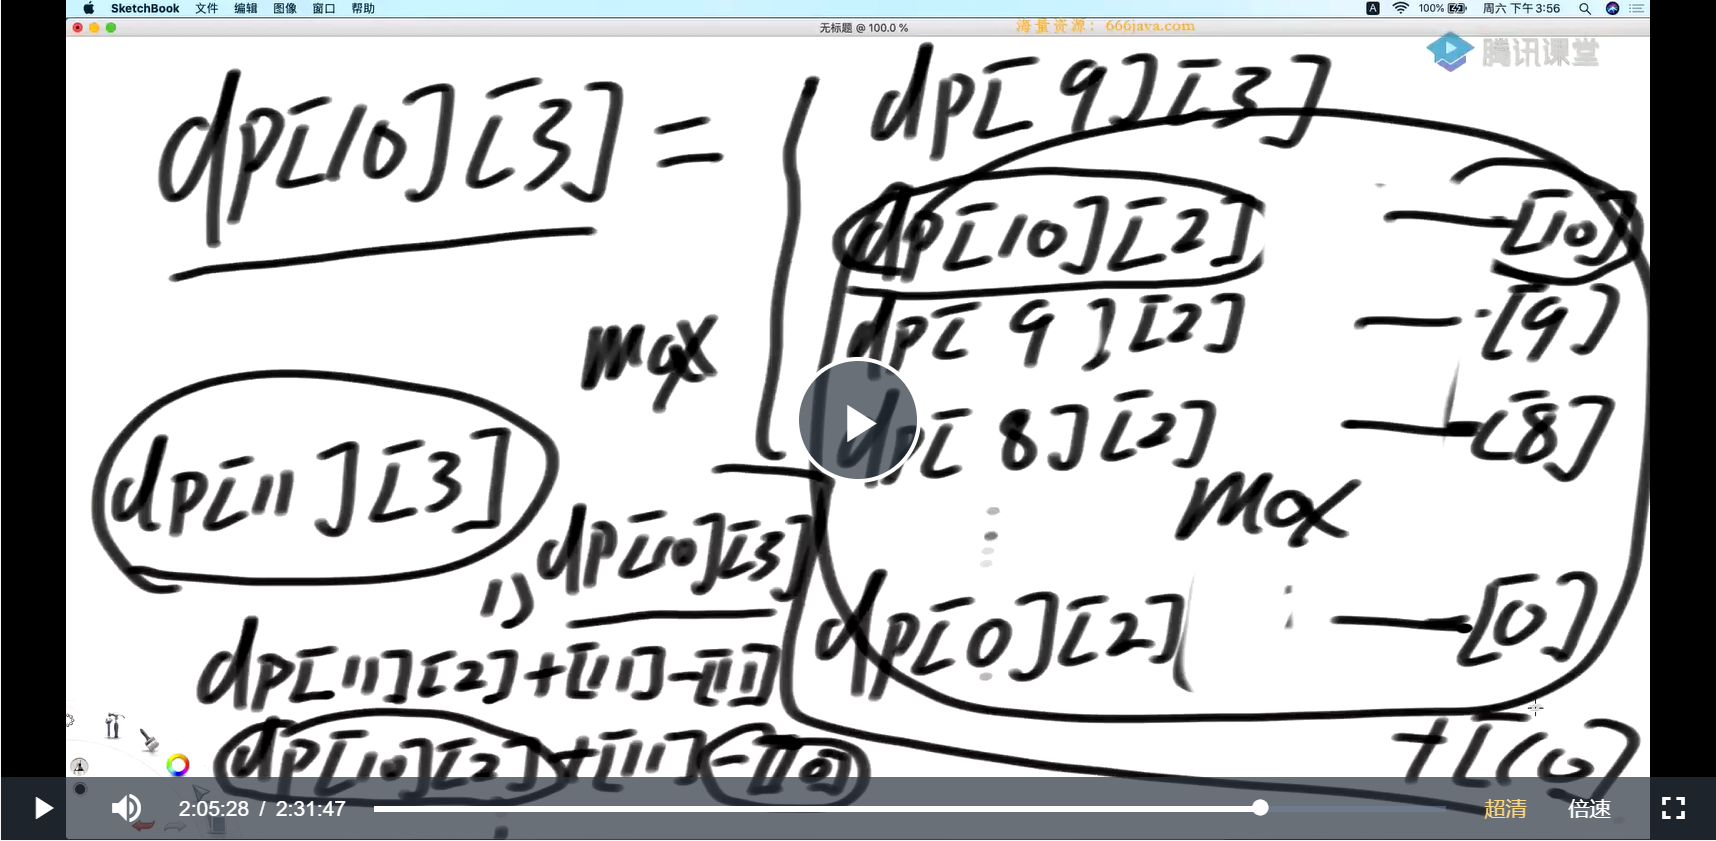 SketchBook 文件 编辑 图像 窗口 帮助 A 100% 周六 下午3:56
无标题 @ 100.0 %
海量资源：666java.com
腾讯课堂
dp[10][3] =
max
dp[9][3]
dp[10][2] — [10]
dp[9][2] — [9]
dp[8][2] — [8]
max
dp[0][2] — [0]
+[10]
dp[11][3]
1) dp[10][3]
dp[11][2]+[11]-[11]
dp[10][2]+[11]-[10]
2:05:28 / 2:31:47 超清 倍速